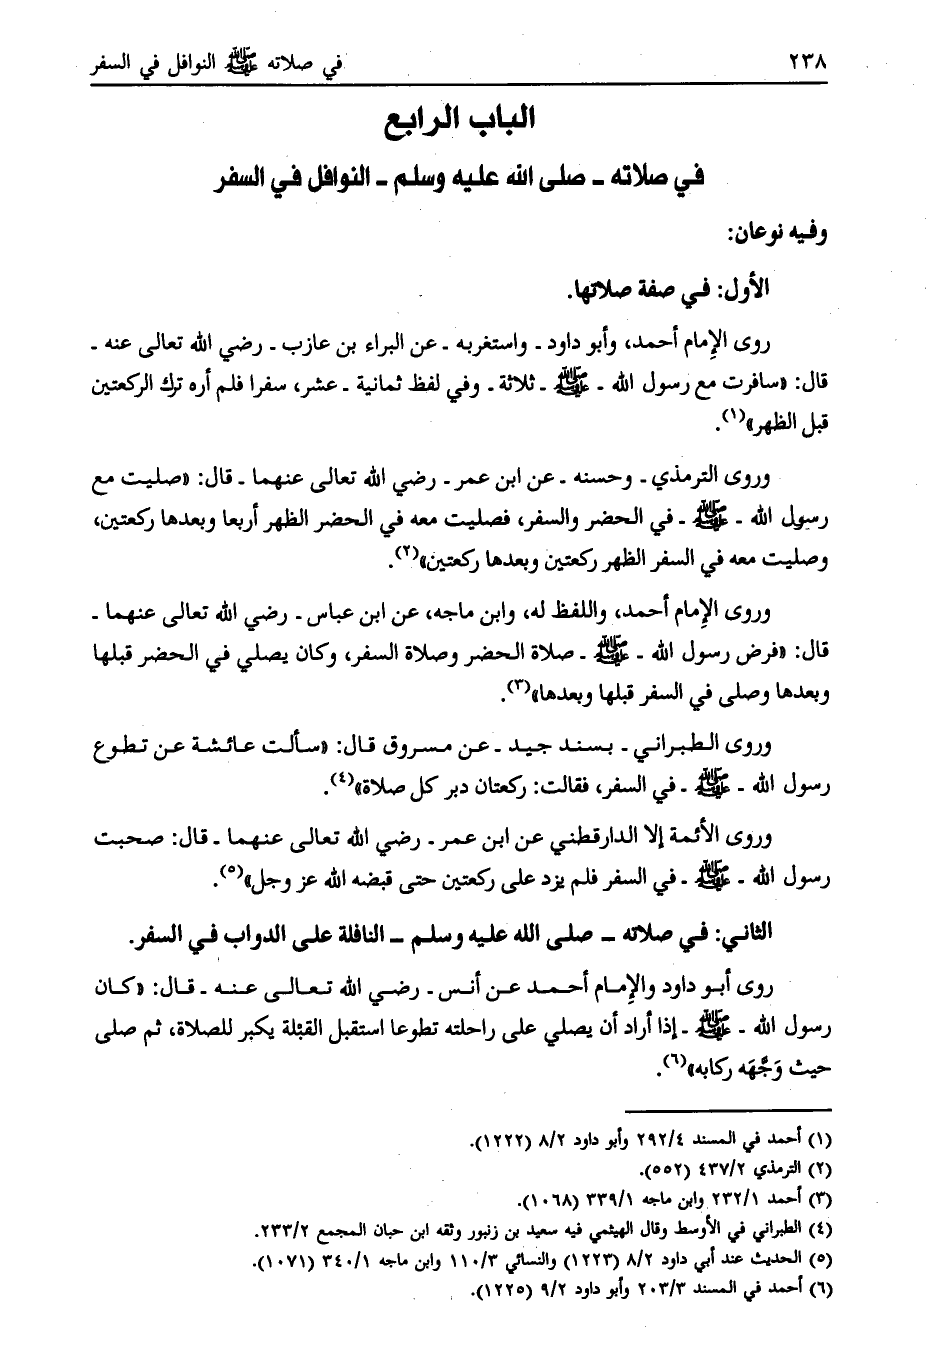 ٢٣٨ في صلاته ﷺ النوافل في السفر
الباب الرابع
في صلاته ـ صلى الله عليه وسلم ـ النوافل في السفر
وفيه نوعان:
الأول: في صفة صلاتها.
روى الإمام أحمد، وأبو داود ـ واستغربه ـ عن البراء بن عازب ـ رضي الله تعالى عنه ـ
قال: «سافرت مع رسول الله ـ ﷺ ـ ثلاثة ـ وفي لفظ ثمانية ـ عشر، سفرا فلم أره ترك الركعتين
قبل الظهر»(١).
وروى الترمذي ـ وحسنه ـ عن ابن عمر ـ رضي الله تعالى عنهما ـ قال: «صليت مع
رسول الله ـ ﷺ ـ في الحضر والسفر، فصليت معه في الحضر الظهر أربعا وبعدها ركعتين،
وصليت معه في السفر الظهر ركعتين وبعدها ركعتين»(٢).
وروى الإمام أحمد، واللفظ له، وابن ماجه، عن ابن عباس ـ رضي الله تعالى عنهما ـ
قال: «فرض رسول الله ـ ﷺ ـ صلاة الحضر وصلاة السفر، وكان يصلي في الحضر قبلها
وبعدها وصلى في السفر قبلها وبعدها»(٣).
وروى الطبراني ـ بسند جيد ـ عن مسروق قال: «سألت عائشة عن تطوع
رسول الله ـ ﷺ ـ في السفر، فقالت: ركعتان دبر كل صلاة»(٤).
وروى الأئمة إلا الدارقطني عن ابن عمر ـ رضي الله تعالى عنهما ـ قال: صحبت
رسول الله ـ ﷺ ـ في السفر فلم يزد على ركعتين حتى قبضه الله عز وجل»(٥).
الثاني: في صلاته ـ صلى الله عليه وسلم ـ النافلة على الدواب في السفر.
روى أبو داود والإمام أحمد عن أنس ـ رضي الله تعالى عنه ـ قال: «كان
رسول الله ـ ﷺ ـ إذا أراد أن يصلي على راحلته تطوعا استقبل القبْلة يكبر للصلاة، ثم صلى
حيث وَجَّهَه ركابه»(٦).
(١) أحمد في المسند ٢٩٢/٤ وأبو داود ٨/٢ (١٢٢٢).
(٢) الترمذي ٤٣٧/٢ (٥٥٢).
(٣) أحمد ٢٣٢/١ وابن ماجه ٣٣٩/١ (١٠٦٨).
(٤) الطبراني في الأوسط وقال الهيثمي فيه سعيد بن زنبور وثقه ابن حبان المجمع ٢٣٣/٢.
(٥) الحديث عند أبي داود ٨/٢ (١٢٢٣) والنسائي ١١٠/٣ وابن ماجه ٣٤٠/١ (١٠٧١).
(٦) أحمد في المسند ٢٠٣/٣ وأبو داود ٩/٢ (١٢٢٥).